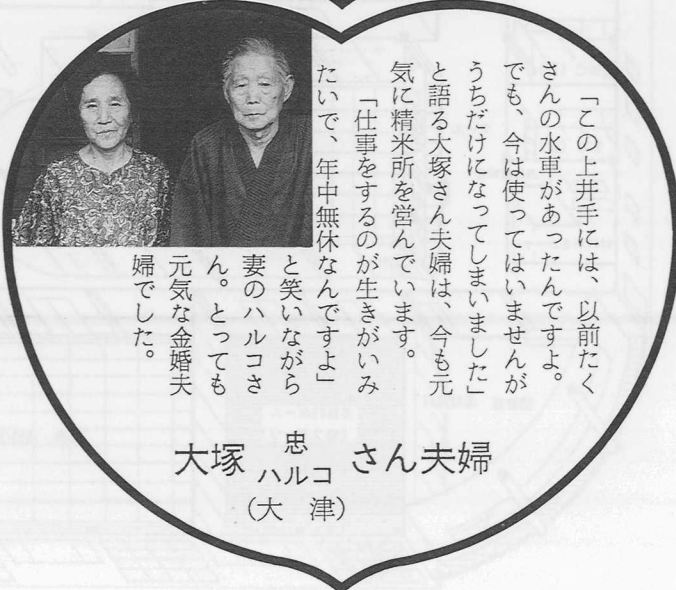 「この上井手には、以前たく
さんの水車があったんですよ。
でも、今は使ってはいませんが
うちだけになってしまいました」
と語る大塚さん夫婦は、今も元
気に精米所を営んでいます。
「仕事をするのが生きがいみ
たいで、年中無休なんですよ」
と笑いながら
妻のハルコさ
ん。とっても
元気な金婚夫
婦でした。
大塚 忠 ハルコ さん夫婦
(大 津)